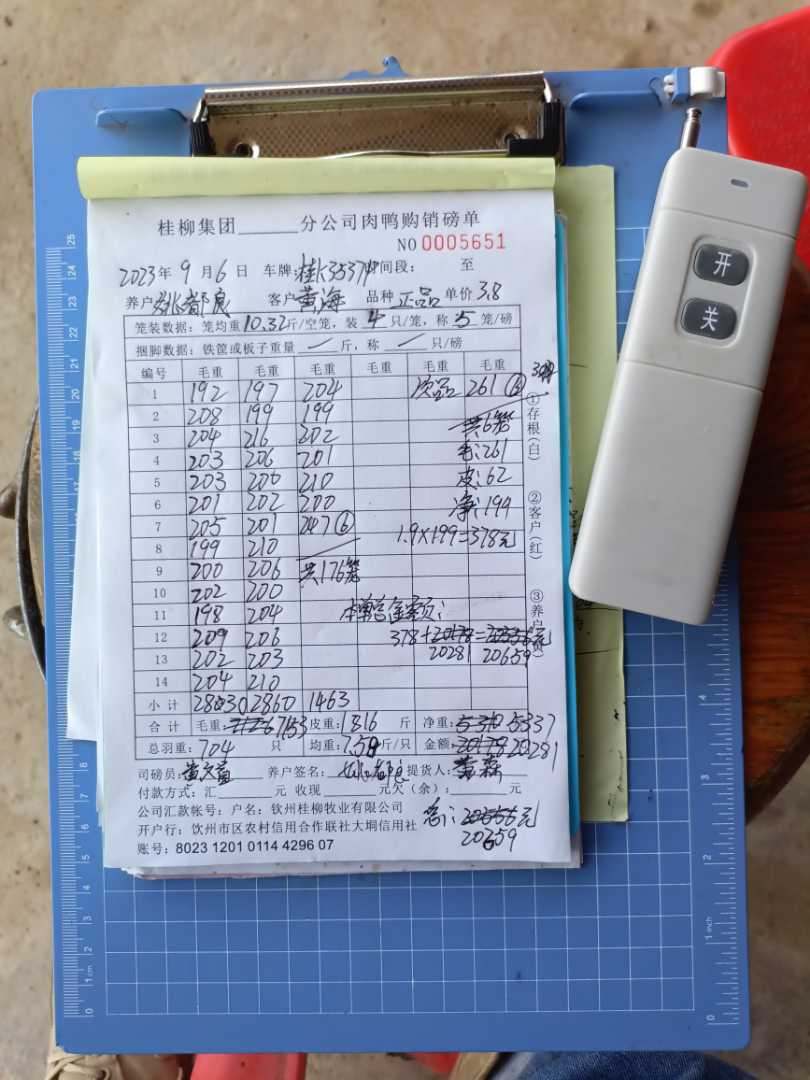 桂柳集团______分公司肉鸭购销磅单
NO 0005651
2023年 9月 6日 车牌:桂K3537 时间段: 至
养户 客户 黄海 品种 正品 单价 3.8
笼装数据: 笼均重 10.32 斤/空笼, 装 4 只/笼, 称 5 笼/磅
捆脚数据: 铁筐或板子重量 / 斤, 称 / 只/磅
编号 毛重 毛重 毛重 毛重 毛重 毛重
1 192 197 204 次品 261 ⑥
2 208 199 199
3 204 216 202 共6笼
4 203 206 201 毛:261
5 203 200 210 皮:62
6 201 202 200 净:199
7 205 201 247 ⑥ 1.9×199=378元
8 199 210
9 200 206 共176笼
10 202 200
11 198 204 本单总金额:
12 209 206 378+20178=20556元
13 202 203 20281 20659
14 204 210
小计 2830 2860 1463
合计 毛重: 7153 皮重: 1816 斤 净重: 5337
总羽重: 704 只 均重: 7.58 斤/只 金额: 20178 20281
司磅员: 养户签名: 提货人: 黄森
付款方式: 汇______元 收现______元欠(余):______元
公司汇款帐号: 户名: 钦州桂柳牧业有限公司
总: 20556元
开户行: 钦州市区农村信用合作联社大垌信用社
20659
账号: 8023 1201 0114 4296 07
①存根(白)
②客户(红)
③养户
开
关